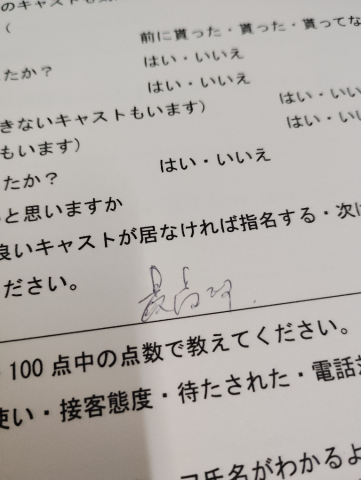 のキャストも
（
前に貰った・貰った・貰ってな
たか？ はい・いいえ
はい・いいえ
きないキャストもいます） はい・いい
もいます） はい・いい
たか？ はい・いいえ
と思いますか
良いキャストが居なければ指名する・次は
ださい。
最高
100点中の点数で教えてください。
使い・接客態度・待たされた・電話
氏名がわかるよ